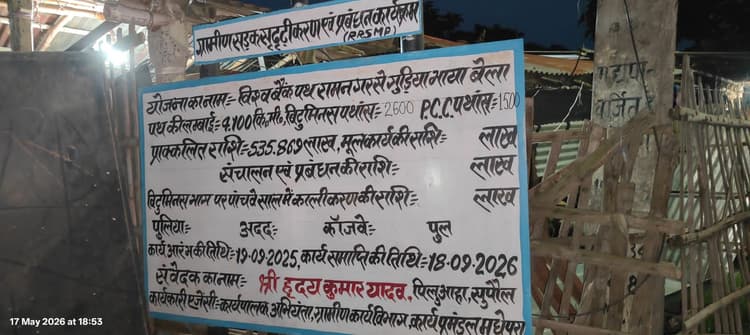 ग्रामीण सड़क सुदृढ़ीकरण एवं प्रबंधन कार्यक्रम
(RRSMP)
योजना का नाम:- विश्व बैंक पथ रामनगर से गुड़िया गाया बेला
पथ की लम्बाई:- 4.100 कि.मी०, बिटुमिनस पथांस:- 2600 P.C.C पथांस:- 1500
प्राक्कलित राशि:- 535.869 लाख, मूल कार्य की राशि:- लाख
संचालन एवं प्रबंधन की राशि:- लाख
बिटुमिनस भाग पर पांचवे साल में कालीकरण की राशि:- लाख
पुलिया:- अदद:- कॉजवे:- पुल
कार्य आरंभ की तिथि:- 19.09.2025, कार्य समाप्ति की तिथि:- 18.09.2026
संवेदक का नाम:- श्री हृदय कुमार यादव, पिलुआहा, सुपौल
कार्यकारी एजेंसी:- कार्यपालक अभियंता, ग्रामीण कार्य विभाग, कार्य प्रमंडल मधेपुरा
वर्जित
17 May 2026 at 18:53